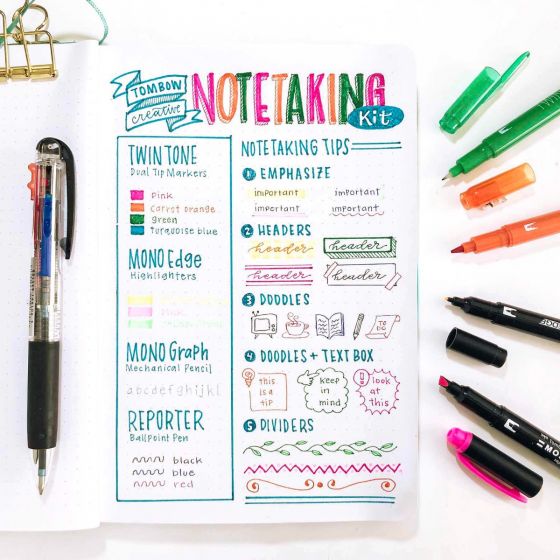 TOMBOW
creative
NOTETAKING
Kit
TWINTONE
Dual Tip Markers
Pink
Carrot orange
Green
Turquoise blue
MONO Edge
Highlighters
Pink
MONO Graph
Mechanical Pencil
abcdefghijkl
REPORTER
Ballpoint Pen
black
blue
red
NOTETAKING TIPS
1 EMPHASIZE
important important
important important
2 HEADERS
header header
header header
3 DOODLES
TO DO
4 DOODLES + TEXT BOX
this
is a
tip
keep
in
mind
look
at
this
5 DIVIDERS